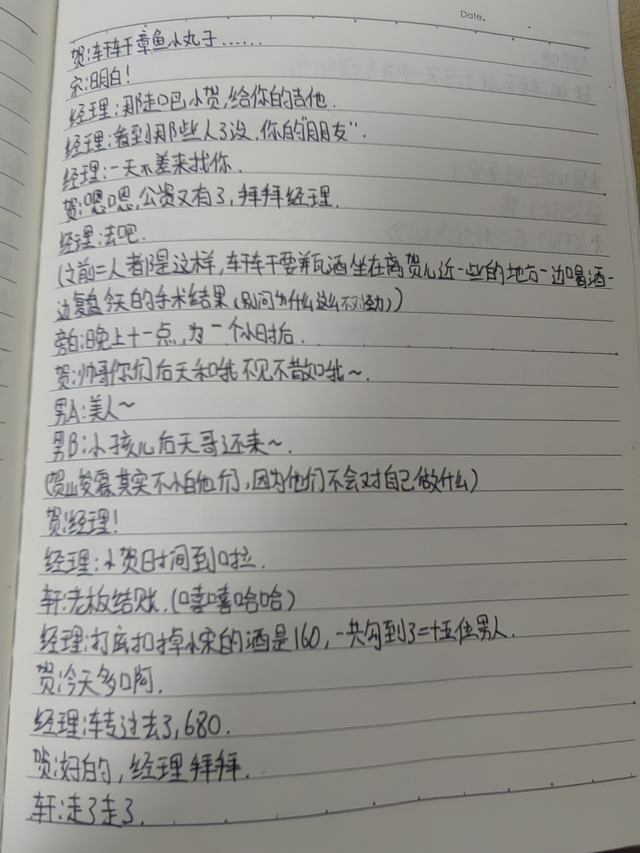 Date.
贺:轩轩章鱼小丸子……
宋:明白!
经理:那走吧小贺,给你的吉他.
经理:看到那些人了没.你的"朋友".
经理:一天不差来找你.
贺:嗯嗯,公资又有了,拜拜经理.
经理:去吧.
(之前二人都是这样,轩轩要瓶酒坐在离贺儿近一些的地方一边喝酒一
边复盘今天的手术结果(别问为什么这么不泾))
旁白:晚上十一点,为一个小时后.
贺:帅哥你们后天和哦不见不散哦~.
男A:美人~
男B:小孩儿后天哥还来~.
(贺峻霖其实不怕他们,因为他们不会对自己做什么)
贺:经理!
经理:小贺时间到啦.
轩:老板结账.(嘻嘻哈哈)
经理:打底扣掉小宋的酒是160,一共勾到了二十五位男人.
贺:今天多啊.
经理:转过去了,680.
贺:好的,经理拜拜.
轩:走了走了.